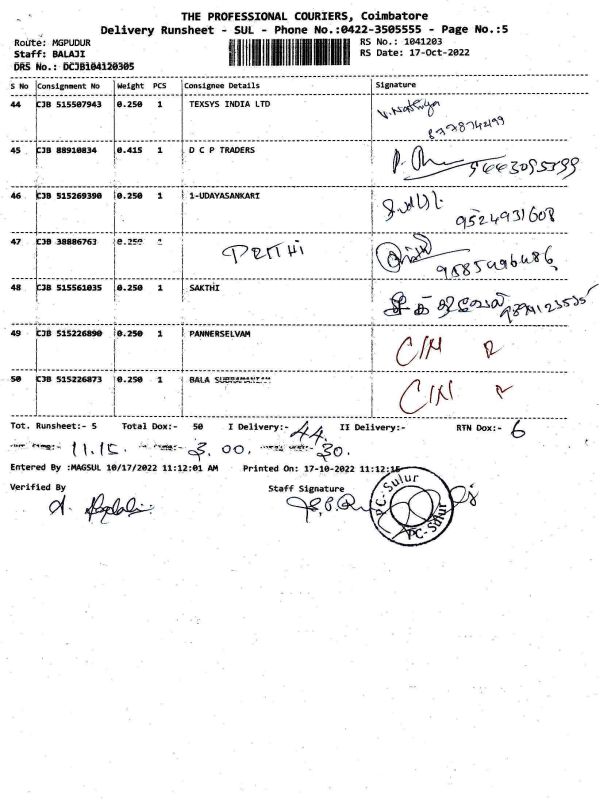 THE PROFESSIONAL COURIERS, Coimbatore
Delivery Runsheet - SUL - Phone No.:0422-3505555 - Page No.:5
Route: MGPUDUR RS No.: 1041203
Staff: BALAJI RS Date: 17-Oct-2022
DRS No.: DCJB104120305
S No Consignment No Weight PCS Consignee Details Signature
44 CJB 515507943 0.250 1 TEXSYS INDIA LTD
45 CJB 88910834 0.415 1 D C P TRADERS
46 CJB 515269390 0.250 1 1-UDAYASANKARI
9524931608
47 CJB 38886763 0.250 1 PRITHI
48 CJB 515561035 0.250 1 SAKTHI சக்திவேல்
49 CJB 515226890 0.250 1 PANNERSELVAM
50 CJB 515226873 0.250 1 BALA SUBRAMANIAM
Tot. Runsheet:- 5 Total Dox:- 50 I Delivery:- 44 II Delivery:- RTN Dox:- 6
11.15. 3.00. 30.
Entered By :MAGSUL 10/17/2022 11:12:01 AM Printed On: 17-10-2022 11:12:15
Verified By Staff Signature
PC-Sulur
PC-Sulur